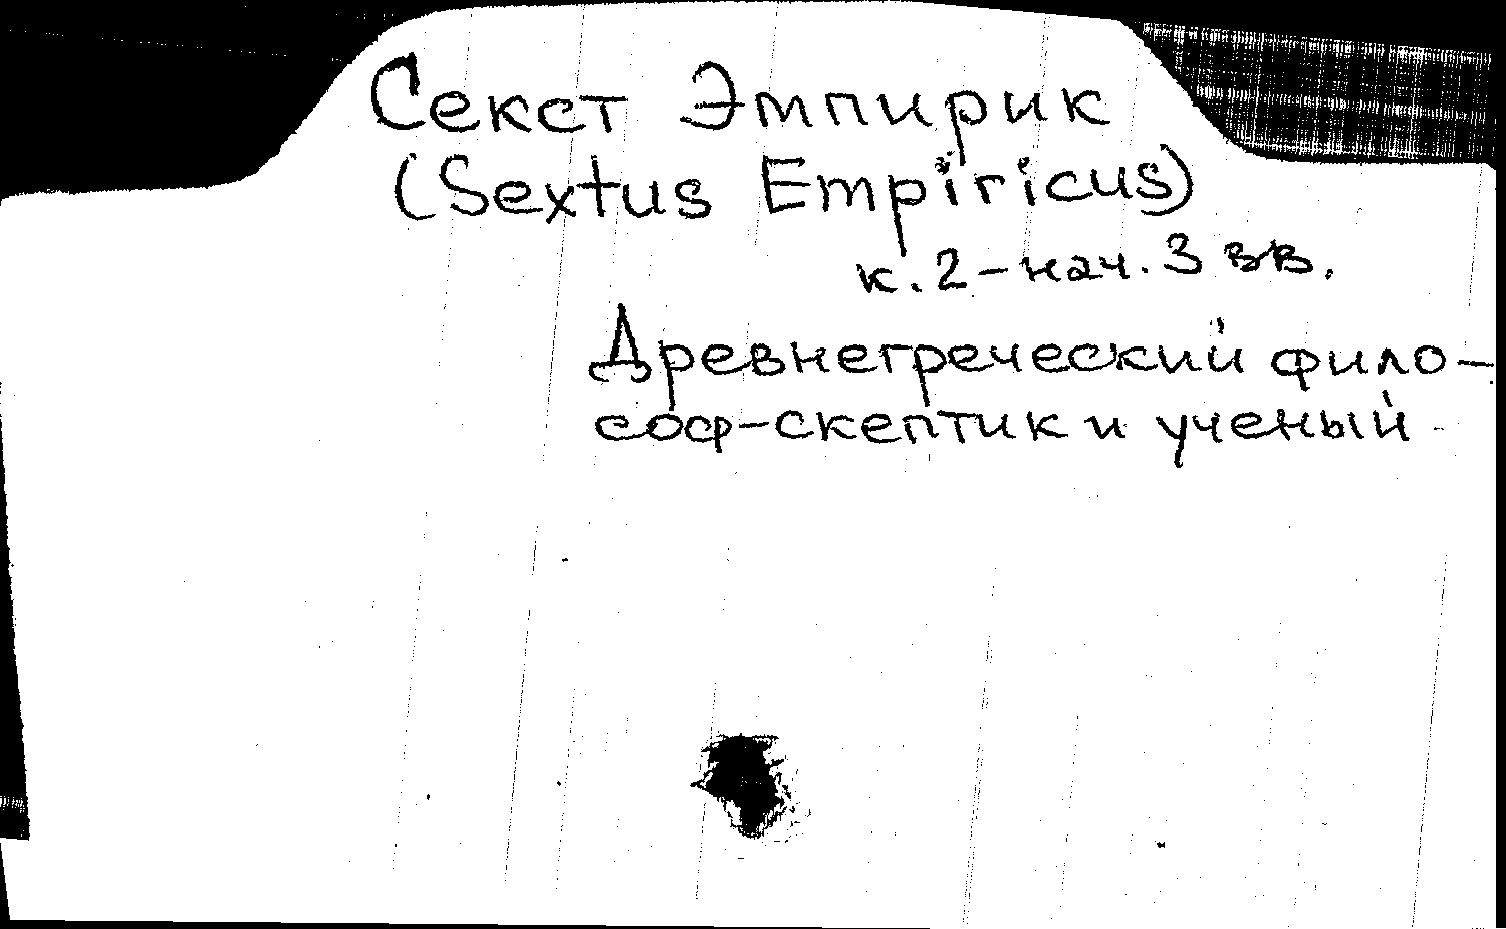 Секст Эмпирик
(Sextus Empiricus)
к. 2 - нач. 3 вв.
Древнегреческий фило-
соф-скептик и ученый